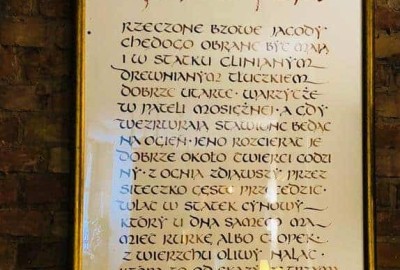 RZECZONE BZOWE JAGODY
CHEDOGO OBRANE BYT MAJA
I W STATKU CLINIANYM
DREWNIANYM TLUCZKIEM
DOBRZE UTARTE · WARZYTŻE
W PATELI MOSIĘŻNEJ · A GDY
WEZRWRAJA STAWIONE BEDĄC
NA OGIEŃ · JENO ROZCIERAT JE
DOBRZE OKOŁO TWIERCI GODZI
NY · Z OGNIA ZDJAWSZY PRZEZ
SITECZKO GĘSTO PRZECEDZIC ·
WLAC W STATEK CYNOWY
KTÓRY U DNA SAMEGO MA
MIEC RURKE ALBO CZOPEK ·
Z WIERZCHU OLIWY NALAC ·